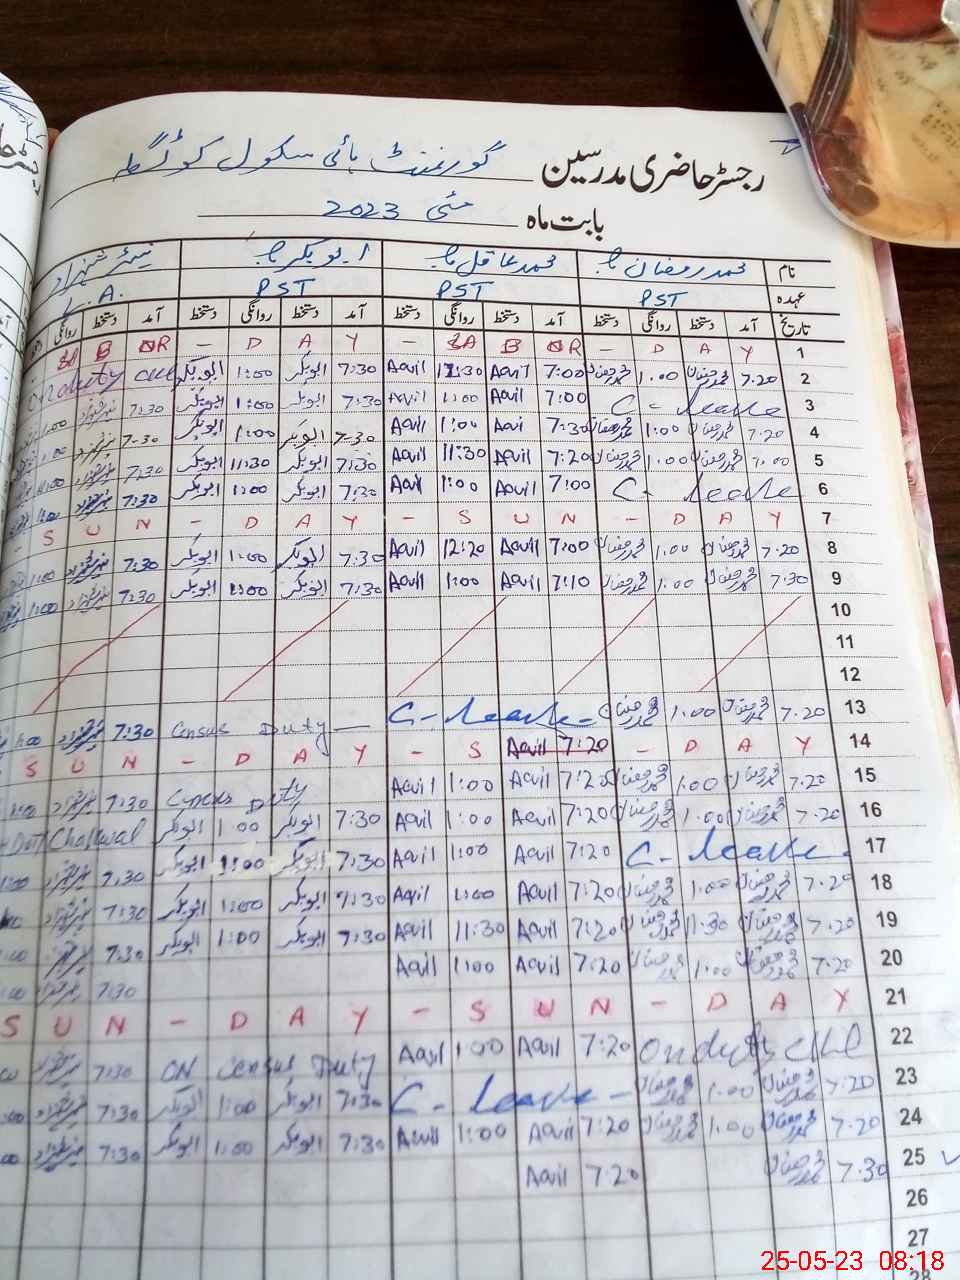 رجسٹر حاضری مدرسین گورنمنٹ ہائی سکول کوٹگلہ
بابت ماہ مئی 2023
نام محمد رمضان محمد عاقل ابوبکر
عہدہ PST PST PST L.A.
تاریخ آمد دستخط روانگی دستخط آمد دستخط روانگی دستخط آمد دستخط روانگی دستخط آمد دستخط روانگی
1 LABOR - DAY - LABOR - DAY
2 7.20 محمد رمضان 1.00 محمد رمضان 7:00 Aavil Aavil 7:30 ابوبکر 1:00 ابوبکر On duty
3 C- leave 7:00 Aavil 1:00 Aavil 7:30 ابوبکر 1:00 ابوبکر 7:30 1:00
4 7:20 محمد رمضان 1:00 محمد رمضان 7:30 Aavil 1:00 Aavil 7-30 ابوبکر 1:00 ابوبکر 7-30 1:00
5 7:00 محمد رمضان 1:00 محمد رمضان 7:20 Aavil 11:30 Aavil 7:30 ابوبکر 11:30 ابوبکر 7:30
6 C- leave 7:00 Aavil 1:00 Aavil 7:30 ابوبکر 1:00 ابوبکر 7:30
7 SUN - DAY - SUN - DAY
8 7.20 محمد رمضان 1.00 محمد رمضان 7:00 Aavil 12:20 Aavil 7:30 ابوبکر 1:00 ابوبکر 7:30 1:00
9 7:30 محمد رمضان 1:00 محمد رمضان 7:10 Aavil 1:00 Aavil 7:30 ابوبکر 1:00 ابوبکر 7:30 1:00
10
11
12
13 7.20 محمد رمضان 1.00 محمد رمضان C- leave - Census Duty 7:30 1:00
14 SUN - DAY - S Aavil 7:20 - DAY
15 7.20 محمد رمضان 1:00 محمد رمضان 7:20 Aavil 1:00 Aavil Census Duty 7:30
16 7.20 محمد رمضان 1.00 محمد رمضان 7:20 Aavil 1:00 Aavil 7:30 ابوبکر 1:00 ابوبکر Chakwal
17 C- leave 7:20 Aavil 1:00 Aavil 7:30 ابوبکر 1:00 ابوبکر 7:30
18 7.20 محمد رمضان 1:00 محمد رمضان 7:20 Aavil 1:00 Aavil 7:30 ابوبکر 1:00 ابوبکر 7:30
19 7.20 محمد رمضان 11:30 محمد رمضان 7:20 Aavil 11:30 Aavil 7:30 ابوبکر 1:00 ابوبکر 7:30
20 7.20 محمد رمضان 1:00 محمد رمضان 7:20 Aavil 1:00 Aavil 7:30
21 SUN - DAY - SUN - DAY
22 On duty 7:20 Aavil 1:00 Aavil ON Census Duty 7:30
23 7:20 محمد رمضان 1.00 محمد رمضان C- leave - 7:30 ابوبکر 1:00 ابوبکر 7:30
24 7.20 محمد رمضان 1.00 محمد رمضان 7:20 Aavil 1:00 Aavil 7:30 ابوبکر 1:00 ابوبکر 7:30
25 7.30 محمد رمضان 7:20 Aavil
26
27
28
25-05-23 08:18